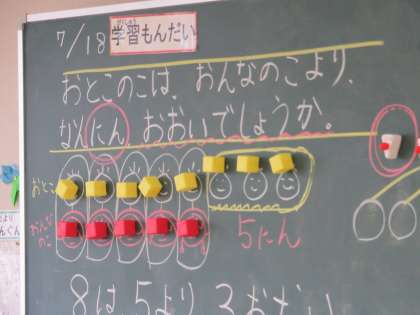 7/18 学習もんだい
がくしゅう
おとこのこは、おんなのこより、
なんにん おおいでしょうか。
おとこ
おんなのこ
5にん
8は 5より 3おおい